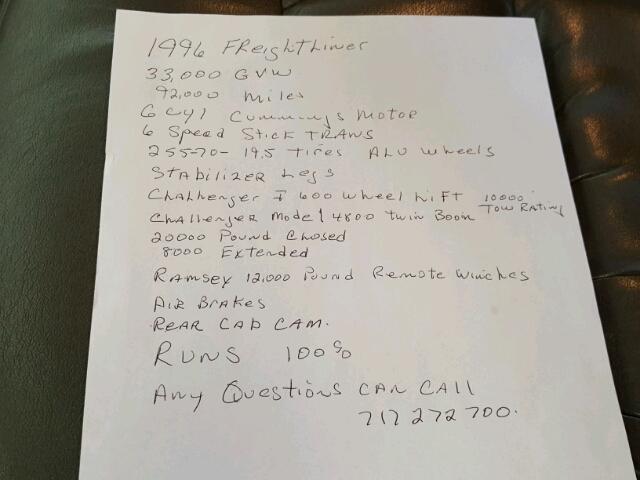 1996 Freightliner
33,000 GVW
92,000 miles
6 cyl Cummings Motor
6 Speed Stick TRANS
255-70-19.5 Tires ALU Wheels
Stabilizer Legs
Challenger I 600 Wheel Lift 10000
Tow Rating
Challenger Model 4800 Twin Boom
20000 Pound Chosed
8000 Extended
Ramsey 12,000 Pound Remote Winches
Air Brakes
Rear Cab Cam.
Runs 100%
Any Questions Can Call
717 272 700.